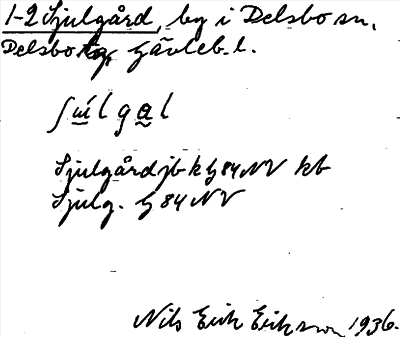 1-2 Sjulgård, by i Delsbo sn,
Delsbo tg, Gävleb. l.
ʃɯ́lgal
Sjulgård jb k G 84 NV kb
Sjulg. G 84 NV
Nils Erik Erikson 1936.